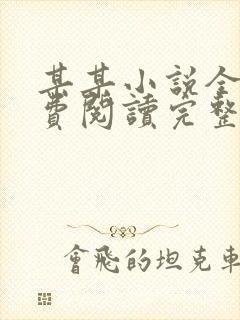 某某小说全
費閱讀完整
會飛的坦克車